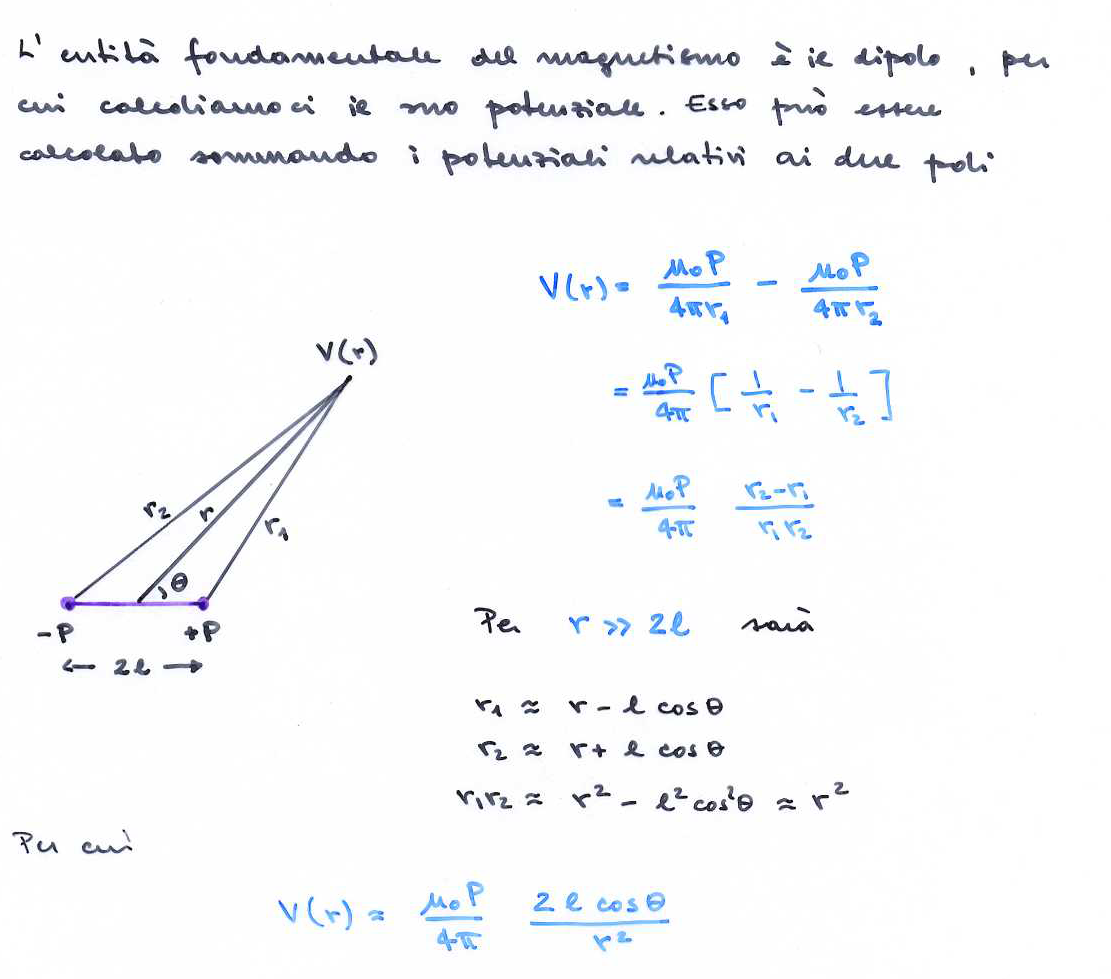 L' entità fondamentale del magnetismo è il dipolo, per
cui calcoliamoci il suo potenziale. Esso può essere
calcolato sommando i potenziali relativi ai due poli
V(r) = μ₀P/4πr₁ - μ₀P/4πr₂
= μ₀P/4π [ 1/r₁ - 1/r₂ ]
= μ₀P/4π r₂-r₁/r₁r₂
V(r)
r₂ r r₁
θ
-P +P
← 2l →
Per r >> 2l sarà
r₁ ≈ r - l cos θ
r₂ ≈ r + l cos θ
r₁r₂ ≈ r² - l² cos²θ ≈ r²
Per cui
V(r) = μ₀P/4π 2 l cos θ/r²